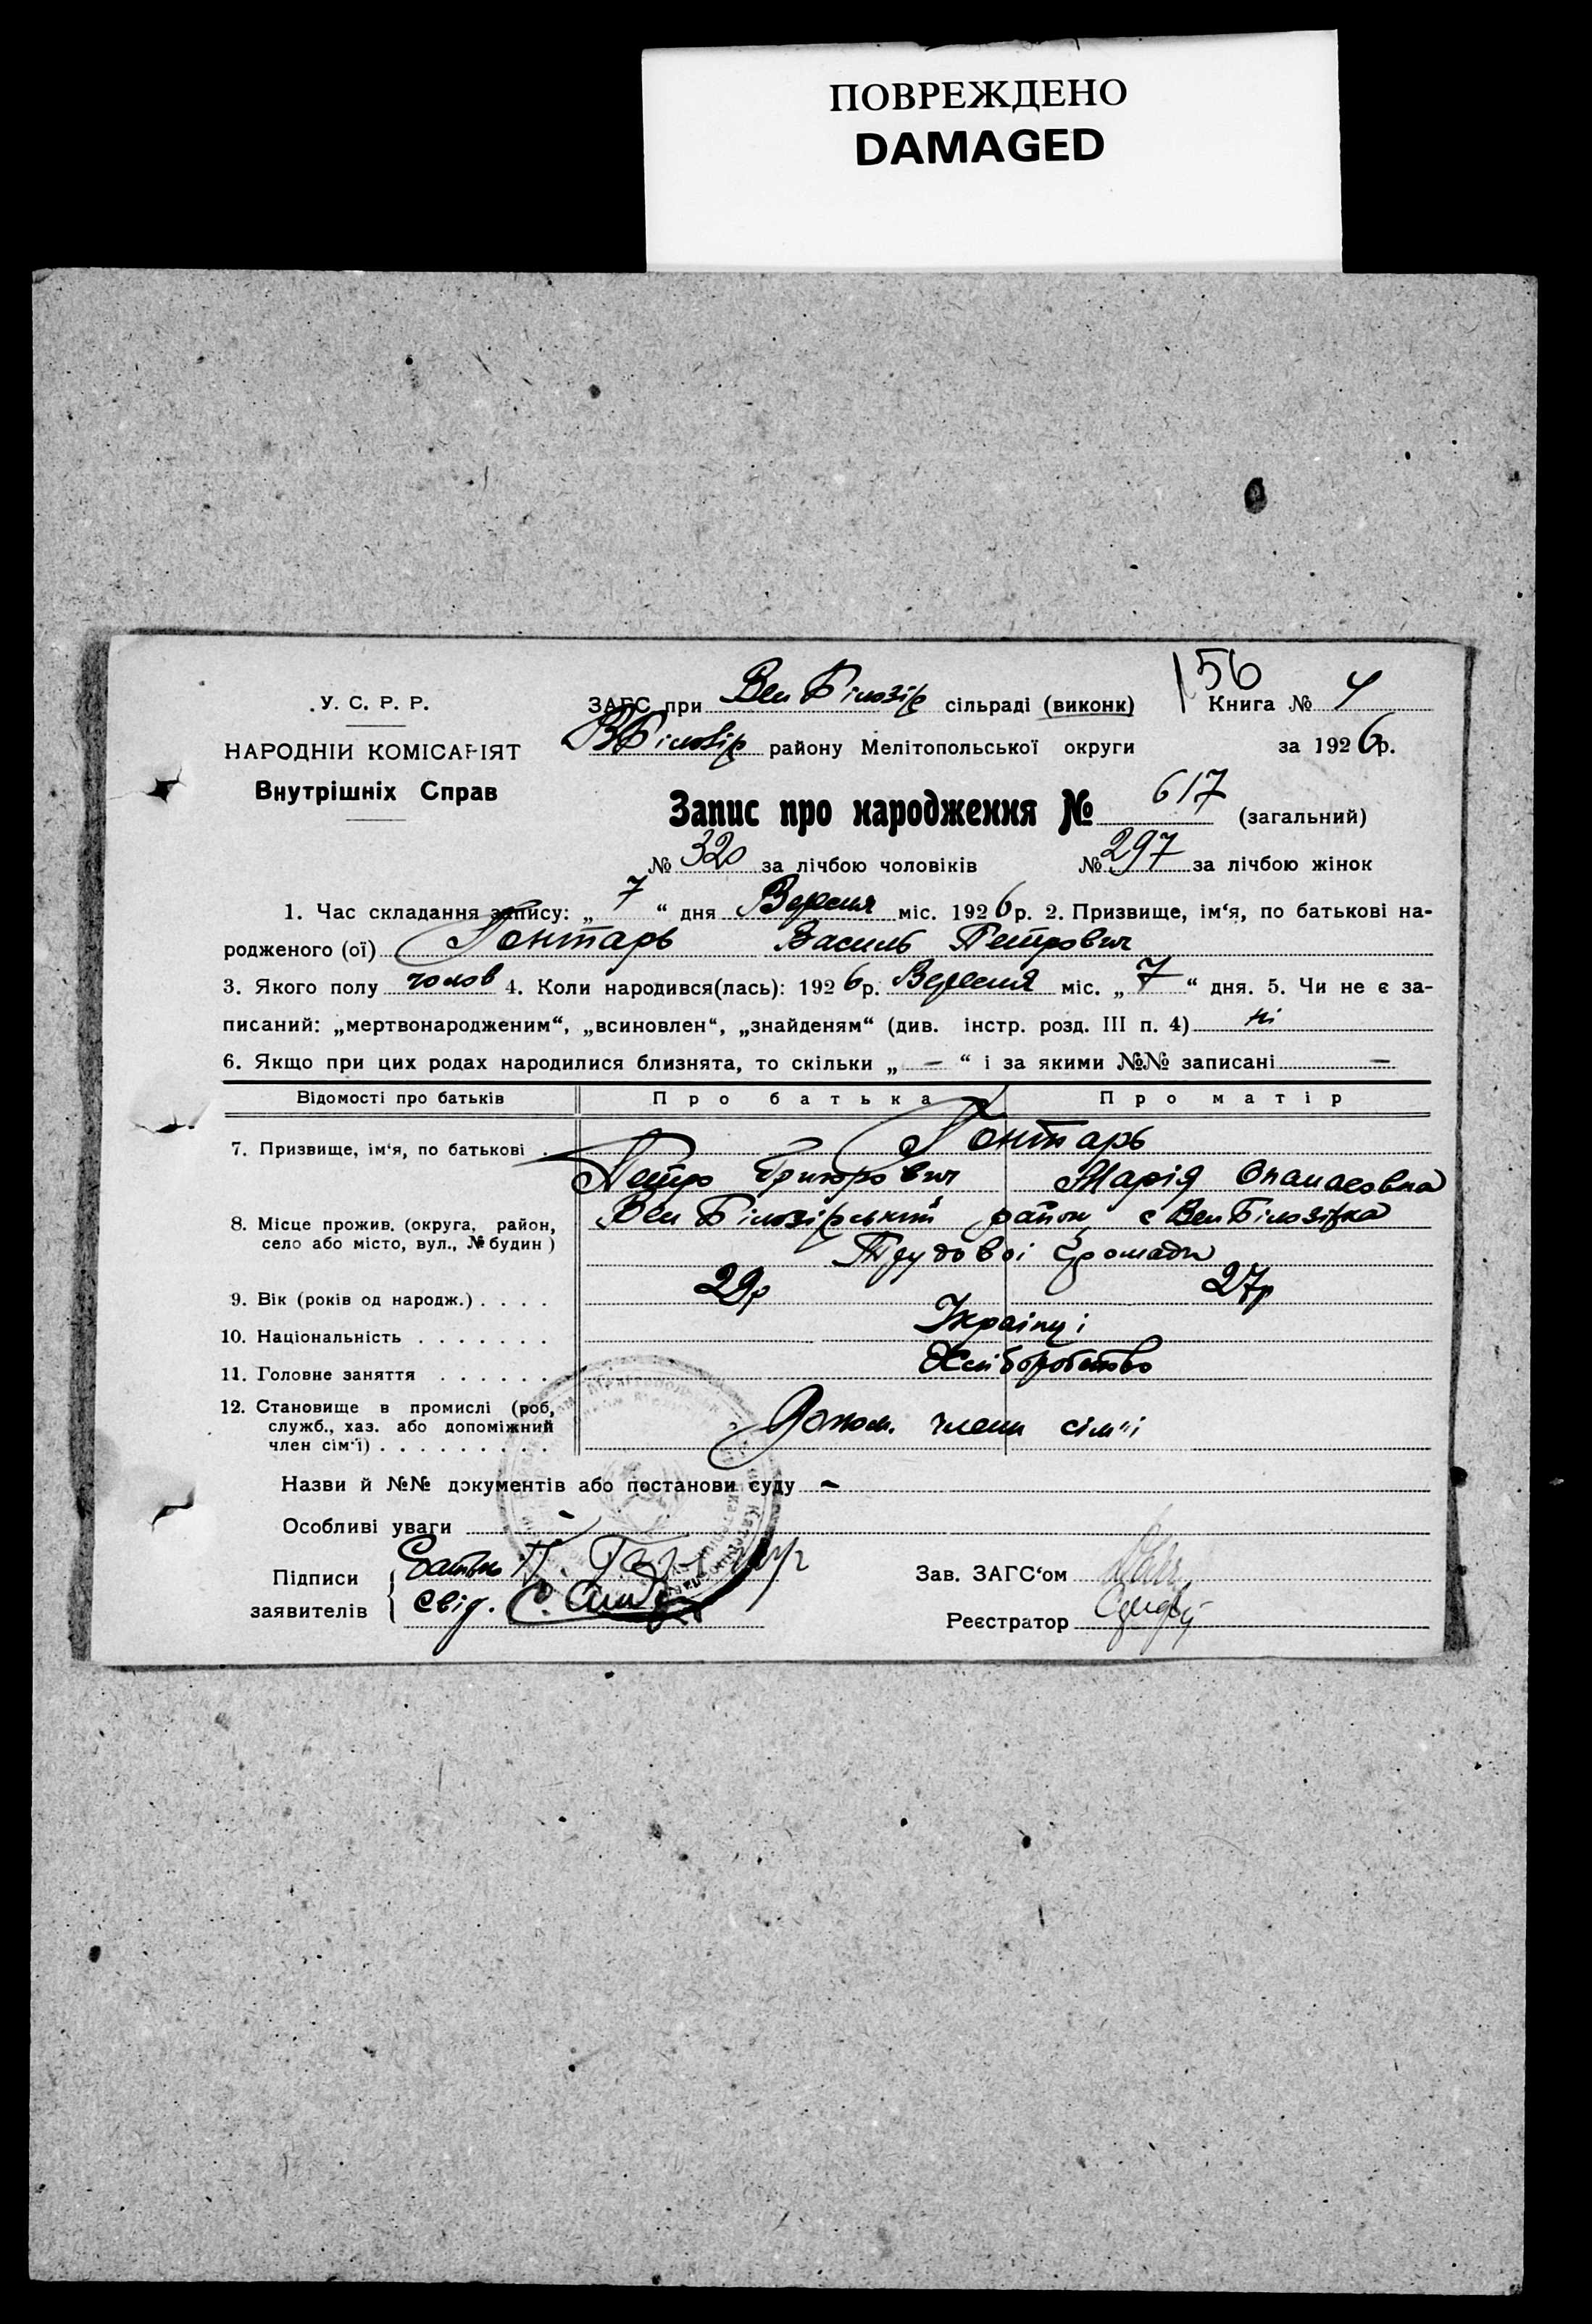 ПОВРЕЖДЕНО
DAMAGED
156
У. С. Р. Р.
ЗАГС при Вел Білозір сільраді (виконк) Книга № 4
НАРОДНІЙ КОМІСАРІЯТ
ВБілозір району Мелітопольської округи за 1926р.
Внутрішніх Справ
Запис про народження № 617 (загальний)
№ 320 за лічбою чоловіків № 297 за лічбою жінок
1. Час складання запису: „ 7 “ дня Вересня міс. 1926р. 2. Призвище, ім‘я, по батькові на-
родженого (ої) Гонтарь Василь Петрович
3. Якого полу чолов 4. Коли народився(лась): 1926р. Вересня міс. „ 7 “ дня. 5. Чи не є за-
писаний: „мертвонародженим“, „всиновлен“, „знайденям“ (див. інстр. розд. III п. 4) ні
6. Якщо при цих родах народилися близнята, то скільки „ — “ і за якими №№ записані —
Відомості про батьків Про батька Про матір
7. Призвище, ім‘я, по батькові . Гонтарь
Петро Григорович Марія Опанасовна
8. Місце прожив. (округа, район, село або місто, вул., № будин) Вел Білозірський район с Вел Білозірка
Трудовоі Громади
9. Вік (років од народж.) . . . . 29р 27р
10. Національність . . . . . . . Украінці
11. Головне заняття . . . . . . Хліборобство
12. Становище в промислі (роб,
служб., хаз. або допоміжний
член сім‘ї) . . . . . . . . . Допом. члени сім"і
Назви й №№ документів або постанови суду —
Особливі уваги —
Підписи Батько П.
заявителів свід. С.
Зав. ЗАГС‘ом
Реєстратор